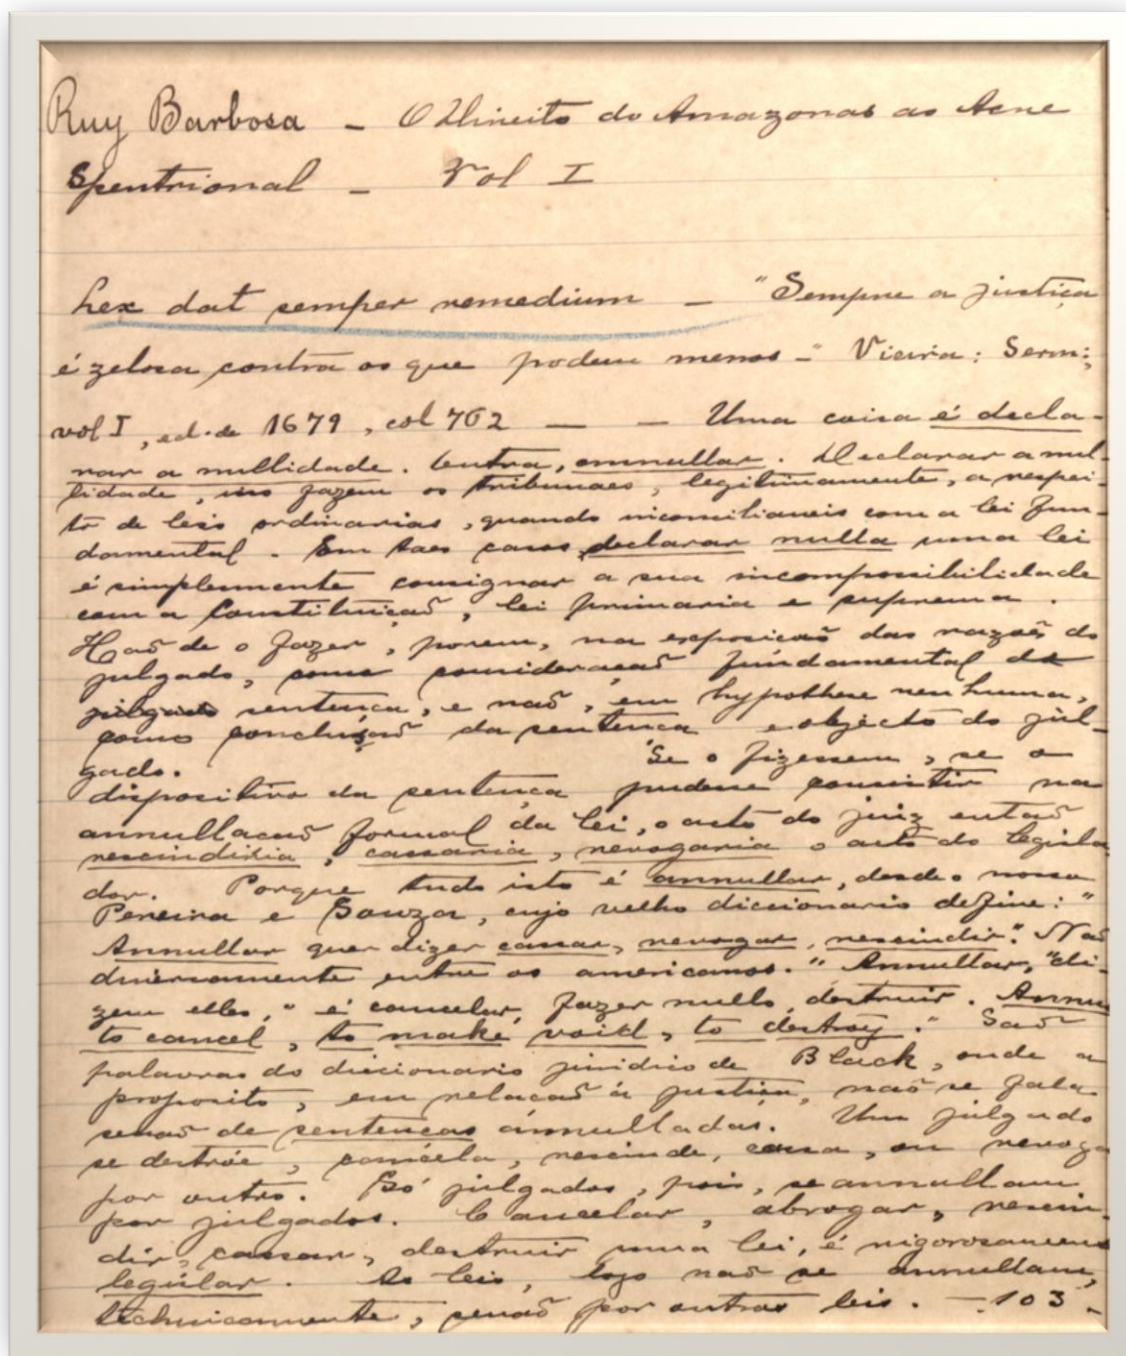 Ruy Barbosa — O Direito do Amazonas ao Acre
Spentrional — Vol I
Lex dat semper remedium — "Sempre a justiça
é zelosa contra os que podem menos —" Vieira: Serm:
vol I, ed. de 1679, col 702 — — Uma coisa é decla-
rar a nullidade. Outra, annullar. Declarar a nul-
lidade, isso fazem os tribunaes, legitimamente, a respei-
to de leis ordinarias, quando inconciliaveis com a lei fun-
damental. Em taes casos, declarar nulla uma lei
é simplesmente consignar a sua incompossibilidade
com a Constituição, lei primaria e suprema.
Hão de o fazer, porem, na exposicão das razões do
julgado, como consideração fundamental da
julgado sentença, e não, em hypothese nenhuma,
como conclusão da sentença e objecto do jul-
gado. Se o fizessem, se o
dispositivo da sentença pudesse consistir na
annullacão formal da lei, o acto do juiz então
rescindiria, cassaria, revogaria o acto do legisla
dor. Porque tudo isto é annullar, desde o nosso
Pereira e Souza, cujo velho diccionario define: "
Annullar quer dizer cassar, revogar, rescindir." Não
diversamente entre os americanos. "Annullar," di-
zem elles, "é cancelar, fazer nullo, destruir. Annu
to cancel, to make void, to destroy." São
palavras do diccionario juridico de Black, onde a
proposito, em relacão á justiça, não se fala
senão de sentenças annulladas. Um julgado
se destróe, cancela, rescinde, cassa, ou revoga
por outro. Só julgados, pois, se annullam
por julgados. Cancelar, abrogar, rescin-
dir, cassar, destruir uma lei, é rigorosamen
legislar. As leis, logo não se annullam,
technicamente, senão por outras leis. — 103 -